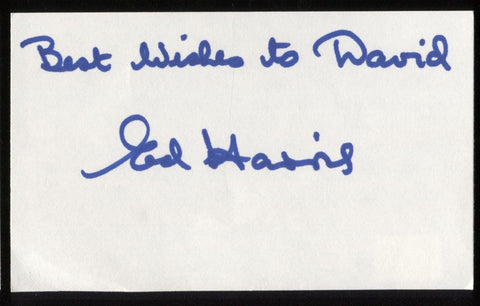 Best Wishes to David
Ed Harris